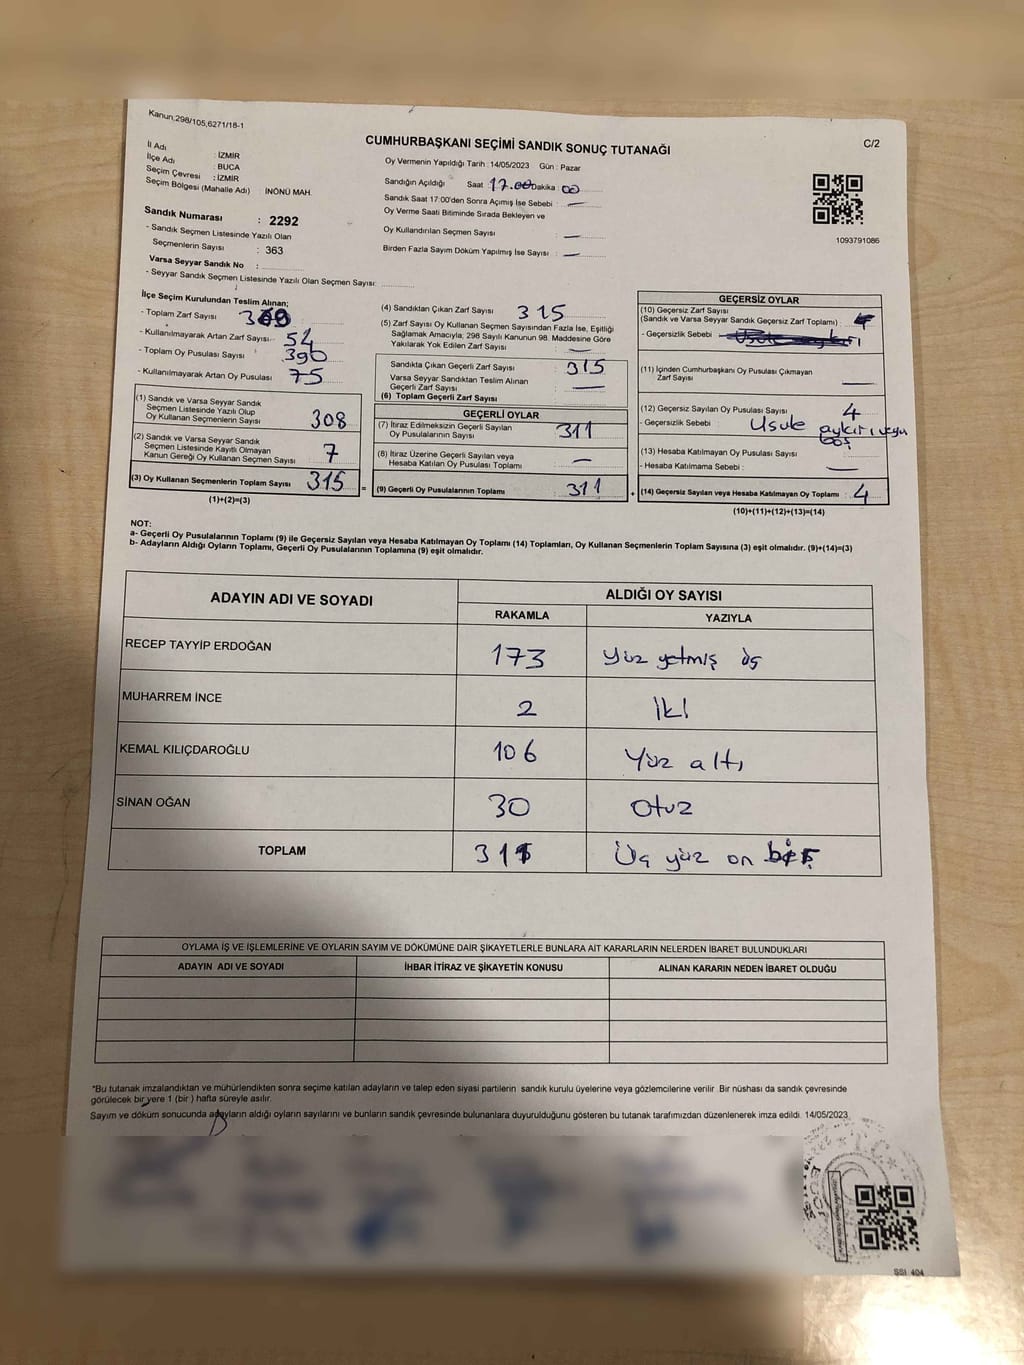 Kanun,298/105,6271/18-1
CUMHURBAŞKANI SEÇİMİ SANDIK SONUÇ TUTANAĞI
C/2
İl Adı : İZMİR
İlçe Adı : BUCA
Seçim Çevresi : İZMİR
Seçim Bölgesi (Mahalle Adı) : İNÖNÜ MAH.
Sandık Numarası : 2292
- Sandık Seçmen Listesinde Yazılı Olan
Seçmenlerin Sayısı : 363
Varsa Seyyar Sandık No :
- Seyyar Sandık Seçmen Listesinde Yazılı Olan Seçmen Sayısı:
Oy Vermenin Yapıldığı Tarih : 14/05/2023 Gün : Pazar
Sandığın Açıldığı Saat 17.00 Dakika : 00
Sandık Saat 17:00'den Sonra Açımış İse Sebebi : —
Oy Verme Saati Bitiminde Sırada Bekleyen ve
Oy Kullandırılan Seçmen Sayısı : —
Birden Fazla Sayım Döküm Yapılmış İse Sayısı : —
1093791086
İlçe Seçim Kurulundan Teslim Alınan;
- Toplam Zarf Sayısı
- Kullanılmayarak Artan Zarf Sayısı 54
- Toplam Oy Pusulası Sayısı 390
- Kullanılmayarak Artan Oy Pusulası 75
(1) Sandık ve Varsa Seyyar Sandık
Seçmen Listesinde Yazılı Olup
Oy Kullanan Seçmenlerin Sayısı 308
(2) Sandık ve Varsa Seyyar Sandık
Seçmen Listesinde Kayıtlı Olmayan
Kanun Gereği Oy Kullanan Seçmen Sayısı 7
(3) Oy Kullanan Seçmenlerin Toplam Sayısı 315
(1)+(2)=(3)
(4) Sandıktan Çıkan Zarf Sayısı 315
(5) Zarf Sayısı Oy Kullanan Seçmen Sayısından Fazla İse, Eşitliği
Sağlamak Amacıyla; 298 Sayılı Kanunun 98. Maddesine Göre
Yakılarak Yok Edilen Zarf Sayısı : —
Sandıkta Çıkan Geçerli Zarf Sayısı : 315
Varsa Seyyar Sandıktan Teslim Alınan
Geçerli Zarf Sayısı : —
(6) Toplam Geçerli Zarf Sayısı
GEÇERLİ OYLAR
(7) İtiraz Edilmeksizin Geçerli Sayılan
Oy Pusulalarının Sayısı 311
(8) İtiraz Üzerine Geçerli Sayılan veya
Hesaba Katılan Oy Pusulası Toplamı —
= (9) Geçerli Oy Pusulalarının Toplamı 311
GEÇERSİZ OYLAR
(10) Geçersiz Zarf Sayısı
(Sandık ve Varsa Seyyar Sandık Geçersiz Zarf Toplamı) :
- Geçersizlik Sebebi :
(11) İçinden Cumhurbaşkanı Oy Pusulası Çıkmayan
Zarf Sayısı —
(12) Geçersiz Sayılan Oy Pusulası Sayısı 4
- Geçersizlik Sebebi : Usule aykırı veya
boş
(13) Hesaba Katılmayan Oy Pusulası Sayısı
- Hesaba Katılmama Sebebi : —
+ (14) Geçersiz Sayılan veya Hesaba Katılmayan Oy Toplamı : 4
(10)+(11)+(12)+(13)=(14)
NOT:
a- Geçerli Oy Pusulalarının Toplamı (9) ile Geçersiz Sayılan veya Hesaba Katılmayan Oy Toplamı (14) Toplamları, Oy Kullanan Seçmenlerin Toplam Sayısına (3) eşit olmalıdır. (9)+(14)=(3)
b- Adayların Aldığı Oyların Toplamı, Geçerli Oy Pusulalarının Toplamına (9) eşit olmalıdır.
ADAYIN ADI VE SOYADI
ALDIĞI OY SAYISI
RAKAMLA YAZIYLA
RECEP TAYYİP ERDOĞAN 173 Yüz yetmiş üç
MUHARREM İNCE 2 İki
KEMAL KILIÇDAROĞLU 106 Yüz altı
SİNAN OĞAN 30 Otuz
TOPLAM Üç yüz on
OYLAMA İŞ VE İŞLEMLERİNE VE OYLARIN SAYIM VE DÖKÜMÜNE DAİR ŞİKAYETLERLE BUNLARA AİT KARARLARIN NELERDEN İBARET BULUNDUKLARI
ADAYIN ADI VE SOYADI İHBAR İTİRAZ VE ŞİKAYETİN KONUSU ALINAN KARARIN NEDEN İBARET OLDUĞU
*Bu tutanak imzalandıktan ve mühürlendikten sonra seçime katılan adayların ve talep eden siyasi partilerin sandık kurulu üyelerine veya gözlemcilerine verilir. Bir nüshası da sandık çevresinde
görülecek bir yere 1 (bir ) hafta süreyle asılır.
Sayım ve döküm sonucunda adayların aldığı oyların sayılarını ve bunların sandık çevresinde bulunanlara duyurulduğunu gösteren bu tutanak tarafımızdan düzenlenerek imza edildi. 14/05/2023
T.C.
SSI 404